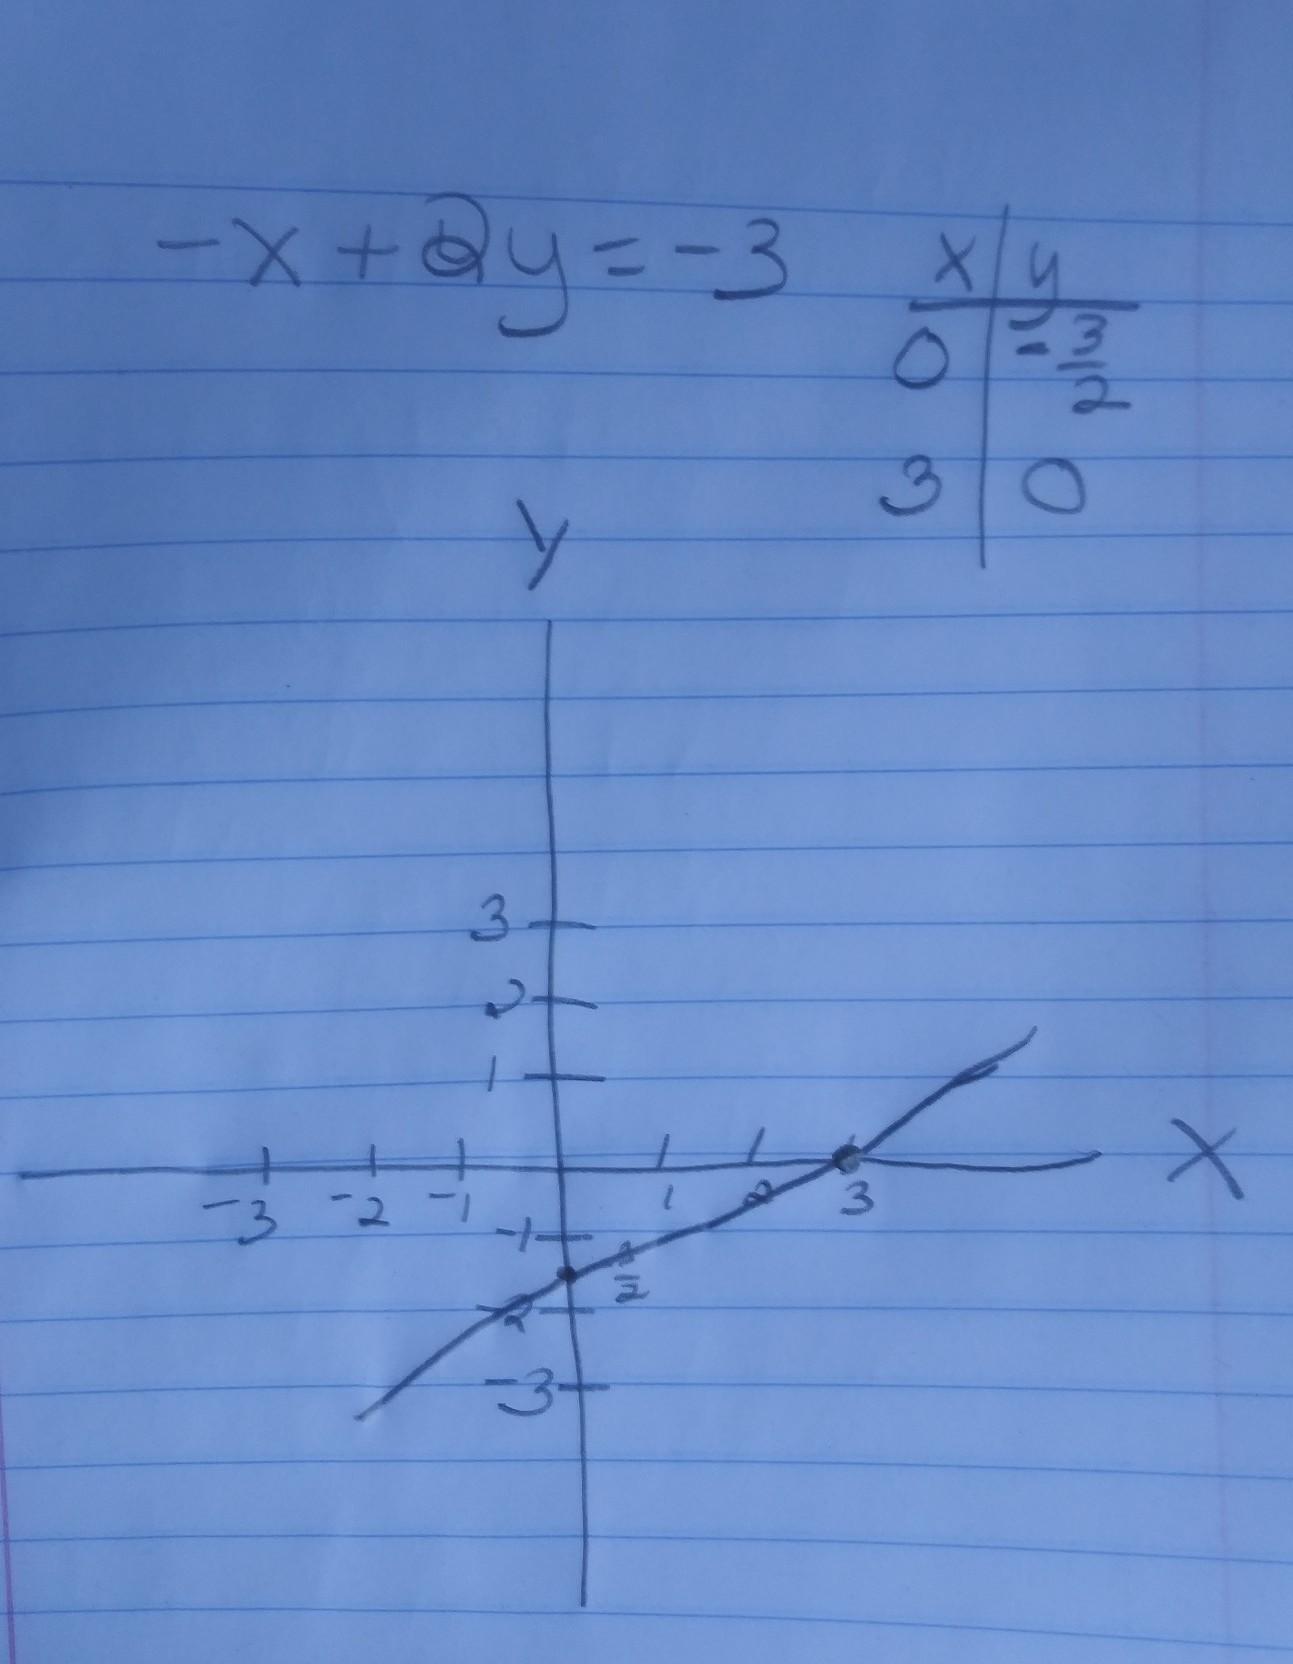 -x + 2y = -3
x y
0 -3/2
3 0
y
3
2
1
-3 -2 -1 1 2 3 X
-1
-2
-3